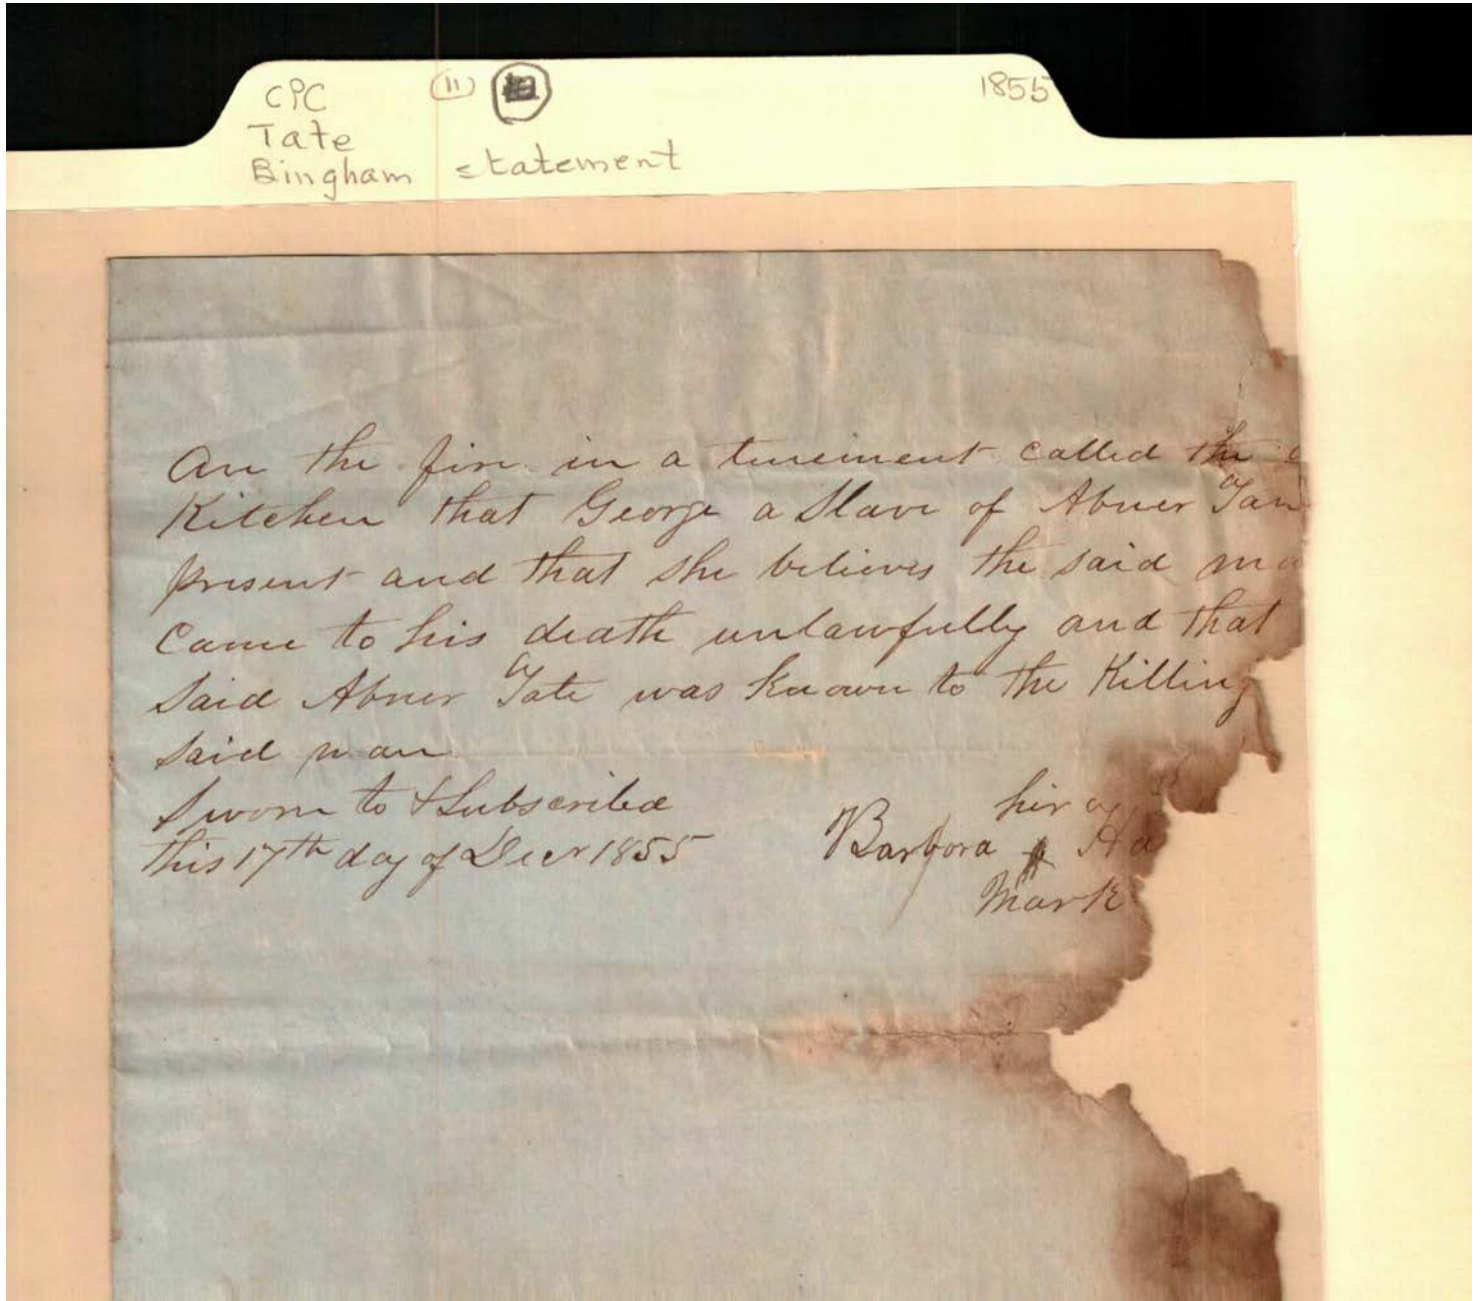 CPC (11) 1855
Tate
Bingham statement
on the fire in a tenement called the
Kitchen that George a Slave of Abner Tan
present and that she believes the said ma
Came to his death unlawfully and that
Said Abner Tate was known to the Killing
said man
Sworn to & Subscribed
this 17th day of Decr 1855
her
Barbora Ha
Mark